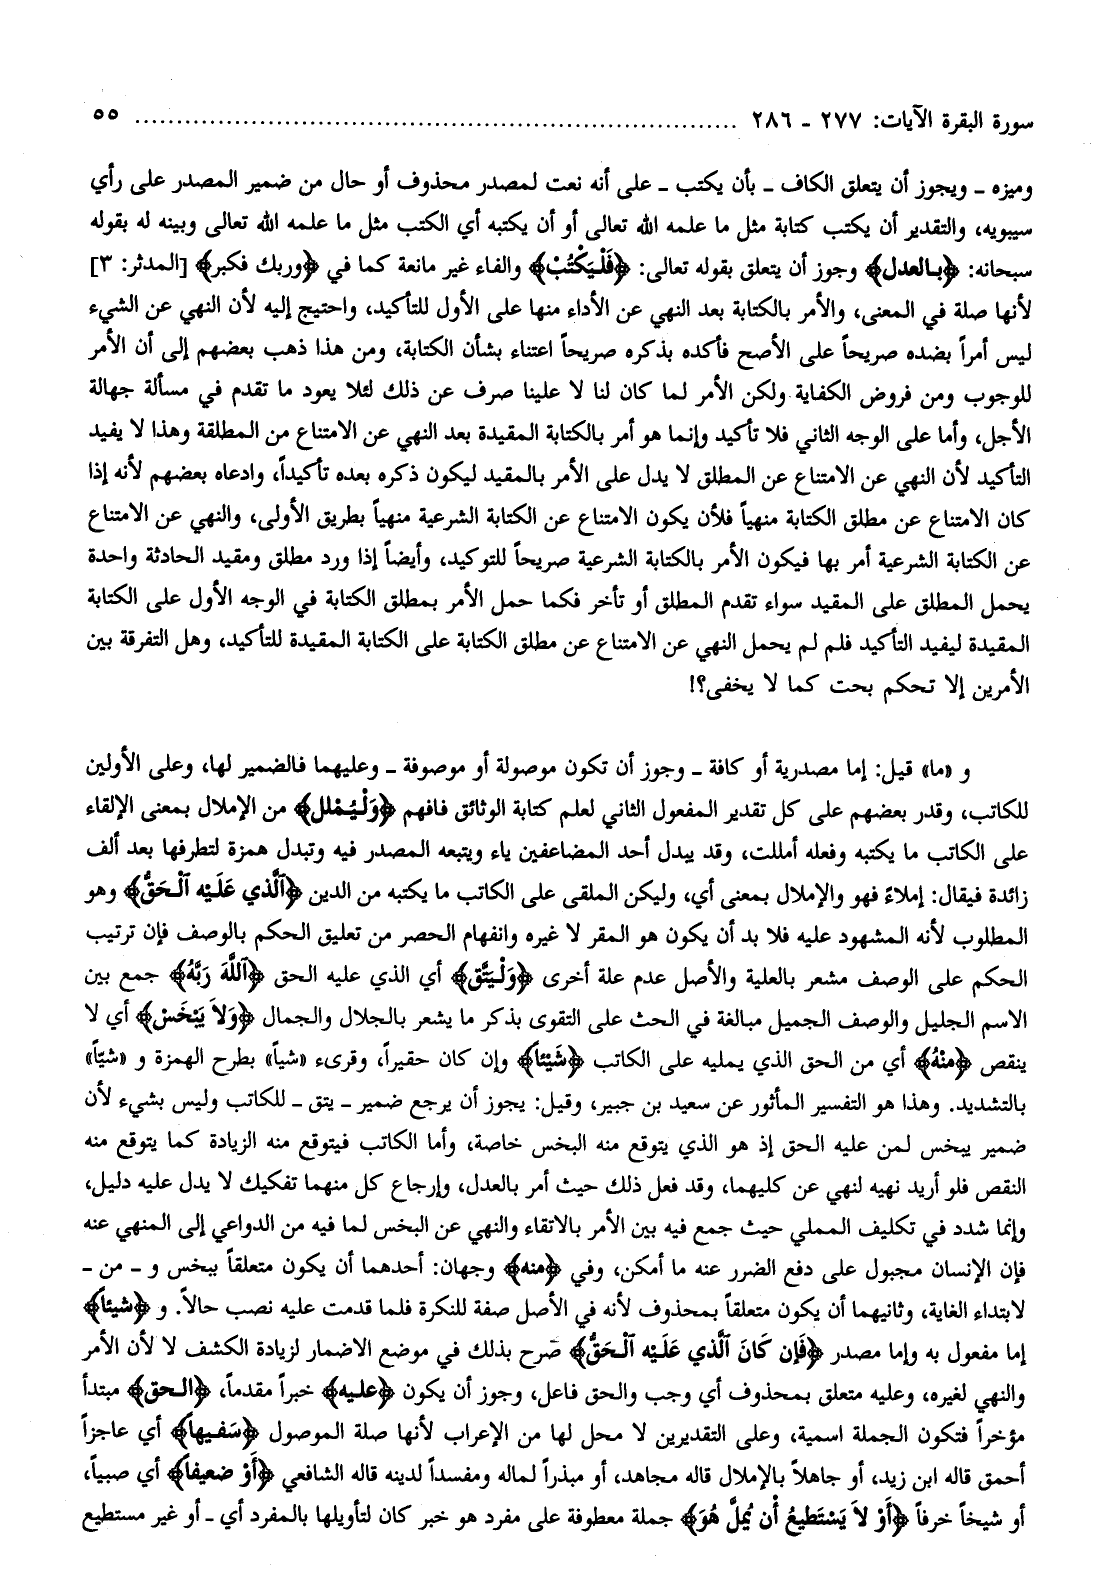 سورة البقرة الآيات: ٢٧٧ ـ ٢٨٦ ................................................................ ٥٥
وميزه ـ ويجوز أن يتعلق الكاف ـ بأن يكتب ـ على أنه نعت لمصدر محذوف أو حال من ضمير المصدر على رأي
سيبويه، والتقدير أن يكتب كتابة مثل ما علمه الله تعالى أو أن يكتبه أي الكتب مثل ما علمه الله تعالى وبينه له بقوله
سبحانه: ﴿بالعدل﴾ وجوز أن يتعلق بقوله تعالى: ﴿فَلْيَكْتُبْ﴾ والفاء غير مانعة كما في ﴿وربك فكبر﴾ [المدثر: ٣]
لأنها صلة في المعنى، والأمر بالكتابة بعد النهي عن الأداء منها على الأول للتأكيد، واحتيج إليه لأن النهي عن الشيء
ليس أمراً بضده صريحاً على الأصح فأكده بذكره صريحاً اعتناء بشأن الكتابة، ومن هذا ذهب بعضهم إلى أن الأمر
للوجوب ومن فروض الكفاية ولكن الأمر لما كان لنا لا علينا صرف عن ذلك لئلا يعود ما تقدم في مسألة جهالة
الأجل، وأما على الوجه الثاني فلا تأكيد وإنما هو أمر بالكتابة المقيدة بعد النهي عن الامتناع من المطلقة وهذا لا يفيد
التأكيد لأن النهي عن الامتناع عن المطلق لا يدل على الأمر بالمقيد ليكون ذكره بعده تأكيداً، وادعاه بعضهم لأنه إذا
كان الامتناع عن مطلق الكتابة منهياً فلأن يكون الامتناع عن الكتابة الشرعية منهياً بطريق الأولى، والنهي عن الامتناع
عن الكتابة الشرعية أمر بها فيكون الأمر بالكتابة الشرعية صريحاً للتوكيد، وأيضاً إذا ورد مطلق ومقيد الحادثة واحدة
يحمل المطلق على المقيد سواء تقدم المطلق أو تأخر فكما حمل الأمر بمطلق الكتابة في الوجه الأول على الكتابة
المقيدة ليفيد التأكيد فلم لم يحمل النهي عن الامتناع عن مطلق الكتابة على الكتابة المقيدة للتأكيد، وهل التفرقة بين
الأمرين إلا تحكم بحت كما لا يخفى؟!
و «ما» قيل: إما مصدرية أو كافة ـ وجوز أن تكون موصولة أو موصوفة ـ وعليهما فالضمير لها، وعلى الأولين
للكاتب، وقدر بعضهم على كل تقدير المفعول الثاني لعلم كتابة الوثائق فافهم ﴿وَلْيُمْلل﴾ من الإملال بمعنى الإلقاء
على الكاتب ما يكتبه وفعله أمللت، وقد يبدل أحد المضاعفين ياء ويتبعه المصدر فيه وتبدل همزة لتطرفها بعد ألف
زائدة فيقال: إملاءً فهو والإملال بمعنى أي، وليكن الملقى على الكاتب ما يكتبه من الدين ﴿ٱلَّذي عَلَيْه ٱلْحَقُّ﴾ وهو
المطلوب لأنه المشهود عليه فلا بد أن يكون هو المقر لا غيره وانفهام الحصر من تعليق الحكم بالوصف فإن ترتيب
الحكم على الوصف مشعر بالعلية والأصل عدم علة أخرى ﴿وَلْيَتَّق﴾ أي الذي عليه الحق ﴿ٱللَّهَ رَبَّهُ﴾ جمع بين
الاسم الجليل والوصف الجميل مبالغة في الحث على التقوى بذكر ما يشعر بالجلال والجمال ﴿وَلاَ يَبْخَسْ﴾ أي لا
ينقص ﴿مِنْهُ﴾ أي من الحق الذي يمليه على الكاتب ﴿شَيْئاً﴾ وإن كان حقيراً، وقرىء «شياً» بطرح الهمزة و «شيّاً»
بالتشديد. وهذا هو التفسير المأثور عن سعيد بن جبير، وقيل: يجوز أن يرجع ضمير ـ يتق ـ للكاتب وليس بشيء لأن
ضمير يبخس لمن عليه الحق إذ هو الذي يتوقع منه البخس خاصة، وأما الكاتب فيتوقع منه الزيادة كما يتوقع منه
النقص فلو أريد نهيه لنهي عن كليهما، وقد فعل ذلك حيث أمر بالعدل، وإرجاع كل منهما تفكيك لا يدل عليه دليل،
وإنما شدد في تكليف المملي حيث جمع فيه بين الأمر بالاتقاء والنهي عن البخس لما فيه من الدواعي إلى المنهي عنه
فإن الإنسان مجبول على دفع الضرر عنه ما أمكن، وفي ﴿منه﴾ وجهان: أحدهما أن يكون متعلقاً بيبخس و ـ من ـ
لابتداء الغاية، وثانيهما أن يكون متعلقاً بمحذوف لأنه في الأصل صفة للنكرة فلما قدمت عليه نصب حالاً. و ﴿شيئاً﴾
إما مفعول به وإما مصدر ﴿فَإن كَانَ ٱلَّذي عَلَيْه ٱلْحَقُّ﴾ صرح بذلك في موضع الاضمار لزيادة الكشف لا لأن الأمر
والنهي لغيره، وعليه متعلق بمحذوف أي وجب والحق فاعل، وجوز أن يكون ﴿عليه﴾ خبراً مقدماً، ﴿الحق﴾ مبتدأ
مؤخراً فتكون الجملة اسمية، وعلى التقديرين لا محل لها من الإعراب لأنها صلة الموصول ﴿سَفيهاً﴾ أي عاجزاً
أحمق قاله ابن زيد، أو جاهلاً بالإملال قاله مجاهد، أو مبذراً لماله ومفسداً لدينه قاله الشافعي ﴿أَوْ ضعيفاً﴾ أي صبياً،
أو شيخاً خرفاً ﴿أَوْ لاَ يَسْتَطيعُ أَن يُملَّ هُوَ﴾ جملة معطوفة على مفرد هو خبر كان لتأويلها بالمفرد أي ـ أو غير مستطيع